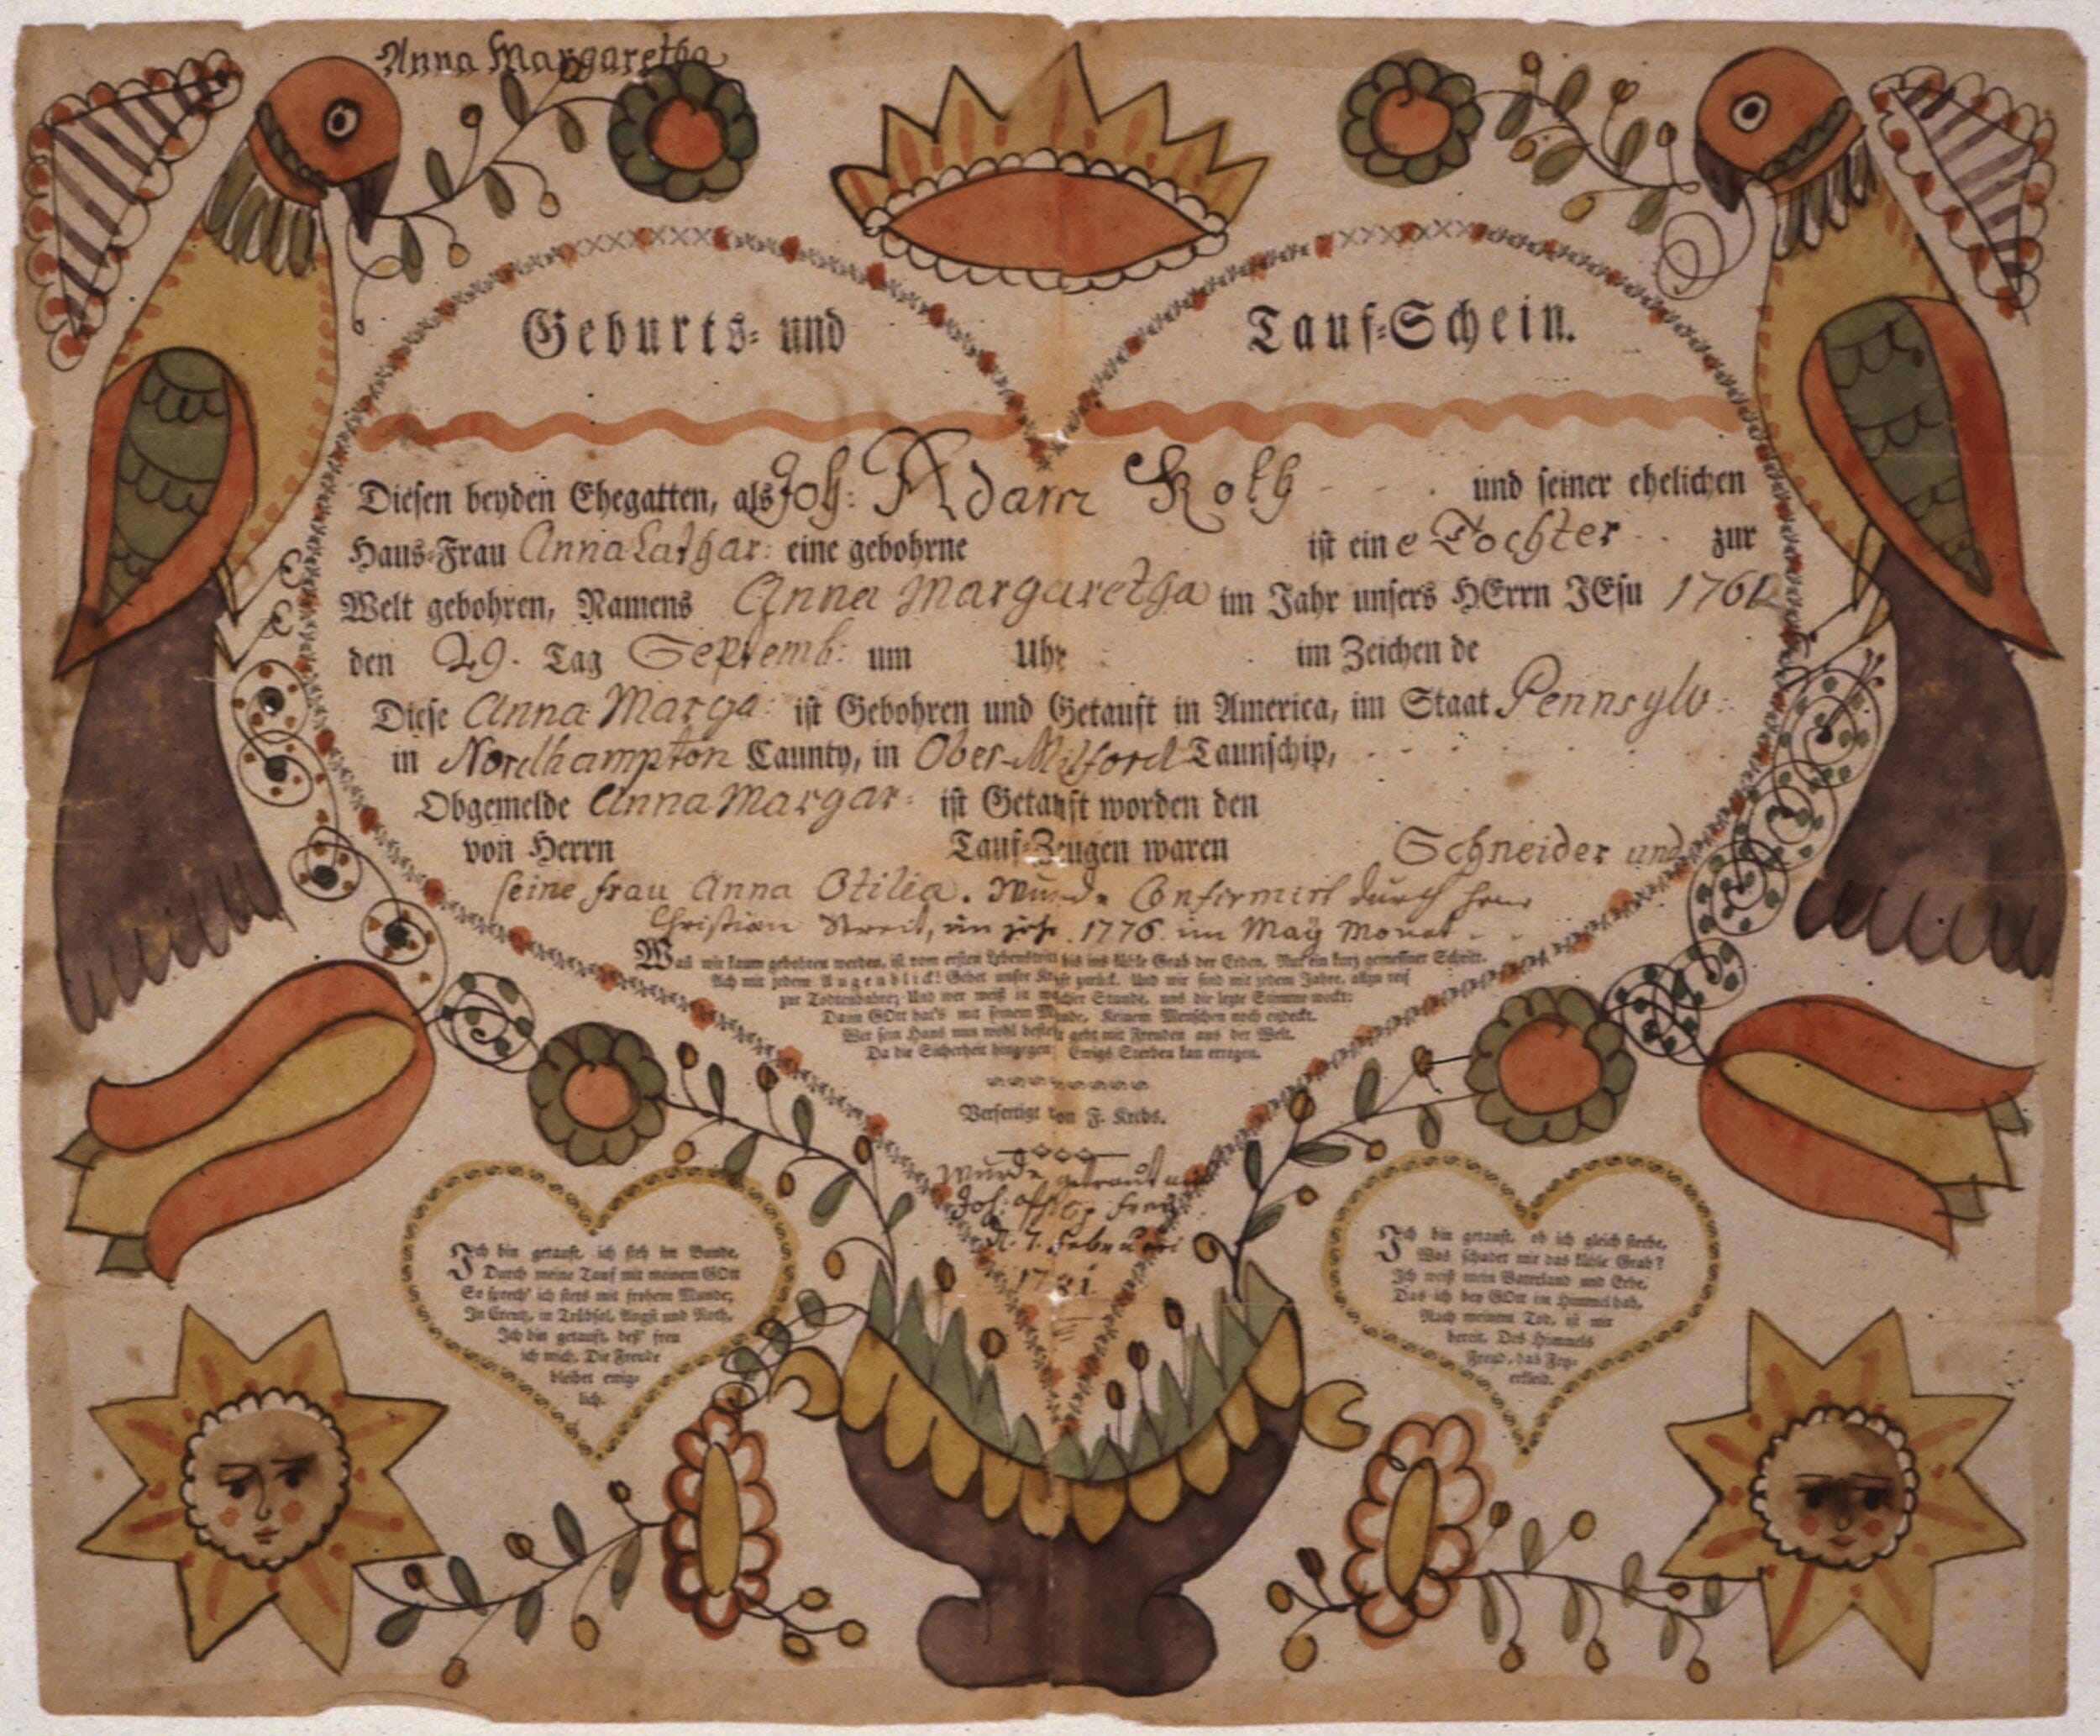 Anna Margaretha
Geburts- und Tauf-Schein.
Diesen beyden Ehegatten, als Joh: Adam Kolb - - - . und seiner ehelichen
Haus-Frau Anna Cathar: eine gebohrne ist eine Tochter . . zur
Welt gebohren, Namens Anna Margaretha im Jahr unsers HErrn JEsu
den 29. Tag Septemb: um Uhr im Zeichen de
Diese Anna Marga: ist Gebohren und Getauft in America, im Staat Pennsylv:
in Nordhampton Caunty, in Ober-Milford Taunschip,
Obgemelde Anna Margar: ist Getauft worden den
von Herrn Tauf-Zeugen waren Schneider und
seine frau Anna Otilia. Wurde Confirmirt durch
Christian Streit, im jahr 1776. im May Monat
Was wir kaum gebohren werden, ist vom ersten Lebenstritt bis ins kühle Grab der Erden, Nur ein kurz gemeßner Schritt.
Ach mit jedem Augenblick! Gehet unser Kraft zurück, Und wir sind mit jedem Jahre, allzu reif
zur Todtenbahre; Und wer weiß in welcher Stunde, uns die lezte Stimme weckt:
Dann GOtt hat's mit seinem Munde, Keinem Menschen noch endeckt.
Wer sein Haus nun wohl bestelt geht mit Freuden aus der Welt.
Da die Sicherheit hingegen Ewigs Sterben kan erregen.
Verfertigt von F. Krebs.
Wurde getraut
Joh: Frey
d. 7. Februari
1781.
Ich bin getauft, ich steh im Bunde,
Durch meine Tauf mit meinem GOtt
So sprech' ich stets mit frohem Munde;
In Creutz, in Trübsal, Angst und Noth,
Ich bin getauft, deß' freu
ich mich. Die Freude
bleibet ewig-
lich.
Ich bin getauft, ob ich gleich sterbe,
Was schadet mir das kühle Grab?
Ich weiß mein Vaterland und Erbe,
Das ich bey GOtt im Himmel hab,
Nach meinem Tod, ist mir
bereit, Des Himmels
Freud, das Fey-
erkleid.